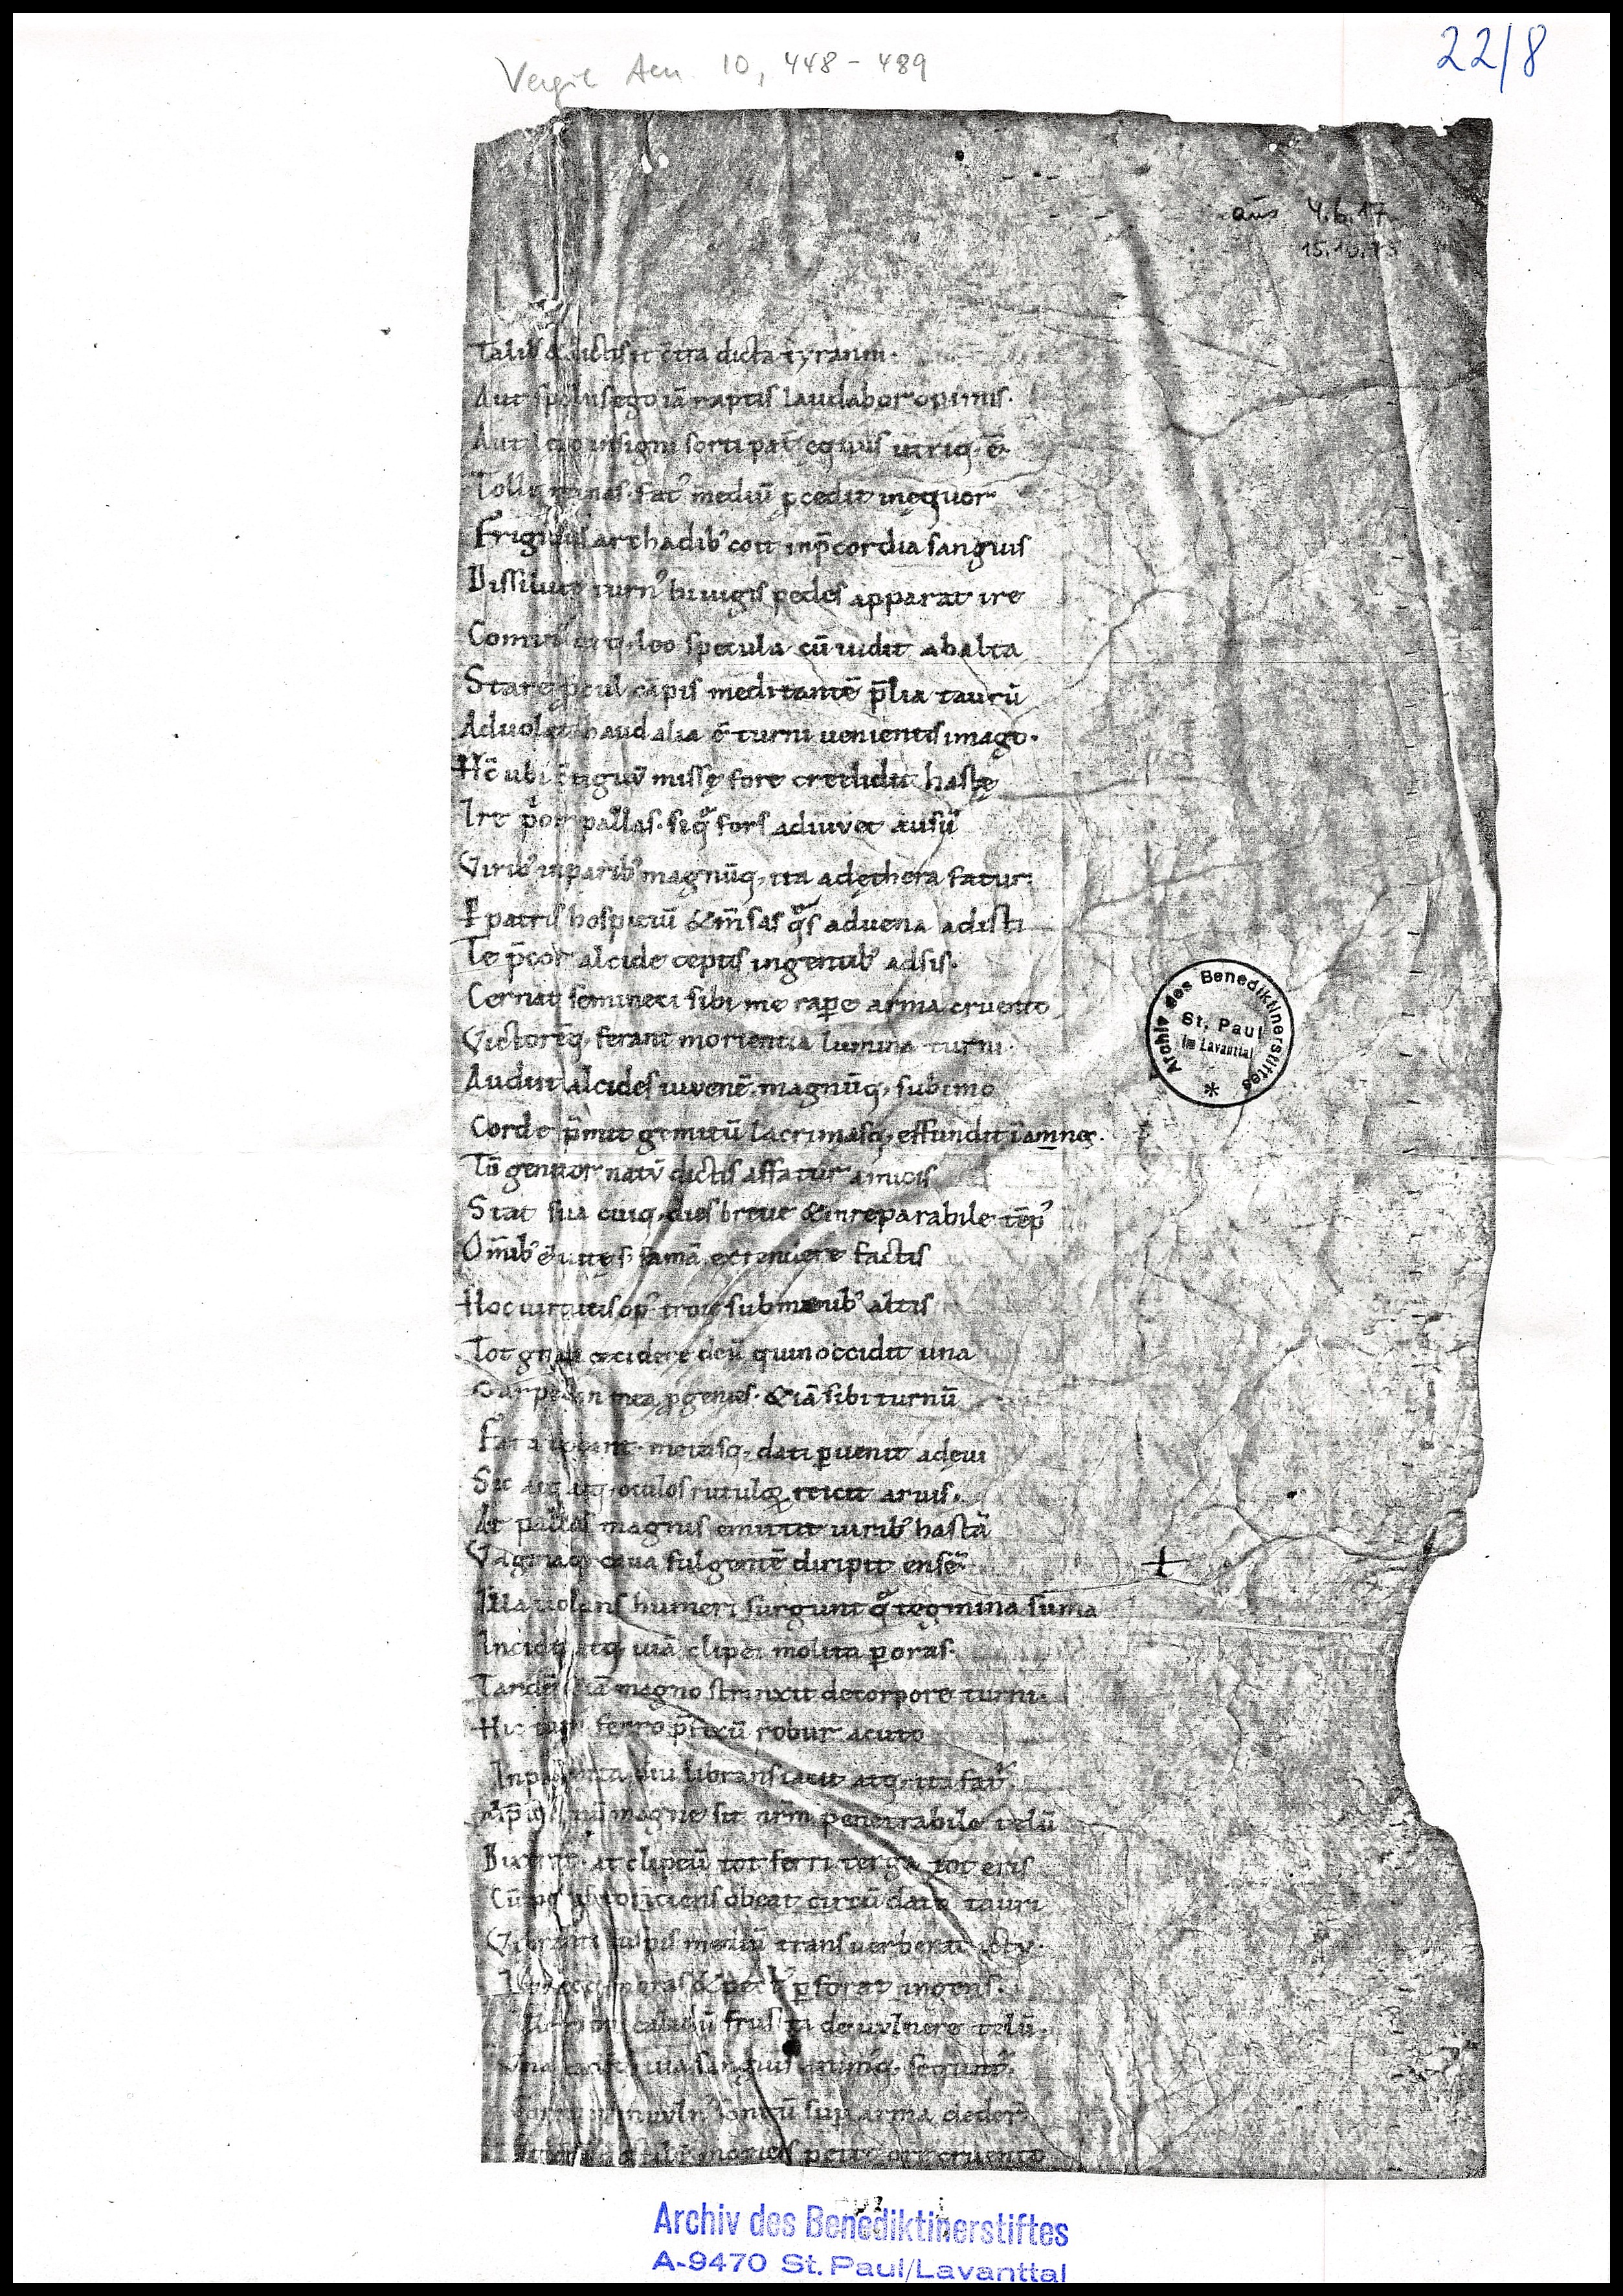 Vergil Aen. 10, 448 - 489
22/8
aus 4.6.17
15.10.73
Talib' & dictis it ct̄ra dicta tyranni.
Aut spoliis ego iā raptis laudabor opimis.
Aut insigni sorti pat̄ equus utriq; ē
Tolle minas. fat' mediū pcedit inequor
Frigidus archadib' coit inp̄cordia sanguis
Dissiluit turn' biiugis pedes apparat ire
Comin' utq; leo specula cū uidit abalta
Stare pcul cāpis meditantē p̄lia taurū
Aduolat haud alia ē turni uenientis imago.
Hc̄ ubi c̄tiguū missę fore credidit hastę
Ire p̍or pallas. siq̄ fors adiuvet ausū
Virib' inparib' magnūq; ita adęthera fatur.
P patris hospitiū & m̄sas q̄s aduena adisti
Te p̄cor alcide ceptis ingentib' adsis.
Cernat semineci sibi me rapꝑe arma cruento
Victorēq; ferant morientia lumina turni.
Audiit alcides iuvenē. magnūq; subimo
Corde p̄mit gemitū lacrimasq; effundit iamnes.
Tū genitor natū dictis affatur amicis
Stat sua cuiq; dies breue & inreparabile tēp'
Om̄ib' ē uitę s; famā extendere factis
Hoc uirtutis op' troie submenib' altis
Tot gnati cecidere deū quin occidit una
Sarpedon mea pgenies. & iā sibi turnū
Fata uocant. metasq; dati puenit adeui
Sic ait atq; oculos rutuloꝝ reicit aruis.
At pallas magnis emittit uirib' hastā
Vaginaq; caua fulgentē diripit ensē
Illa uolans humeri surgunt q̄ tegmina suma
Incidit atq; uiā clipei molita p oras.
Tandē etiā magno strinxit decorpore turni.
Hic ferro p̄fixū robur acuto
Inpallanta diu librans iacit atq; ita fat'.
Aspice nū mage sit nr̄m penetrabile telū
Dixerat. at clipeū tot ferri terga tot eris
Cū pellis totiens obeat circū data tauri
Vibranti cuspis mediū transuerberat ictu.
moras & pect' pforat ingens.
calidū frustra de uulnere telū.
Una uia sanguis animq; sequnt'.
Corruit inuuln' sonitū sup arma deder̄
moriens petit ore cruento
Archiv des Benediktinerstiftes
St. Paul
im Lavanttal
Archiv des Benediktinerstiftes
A-9470 St. Paul/Lavanttal